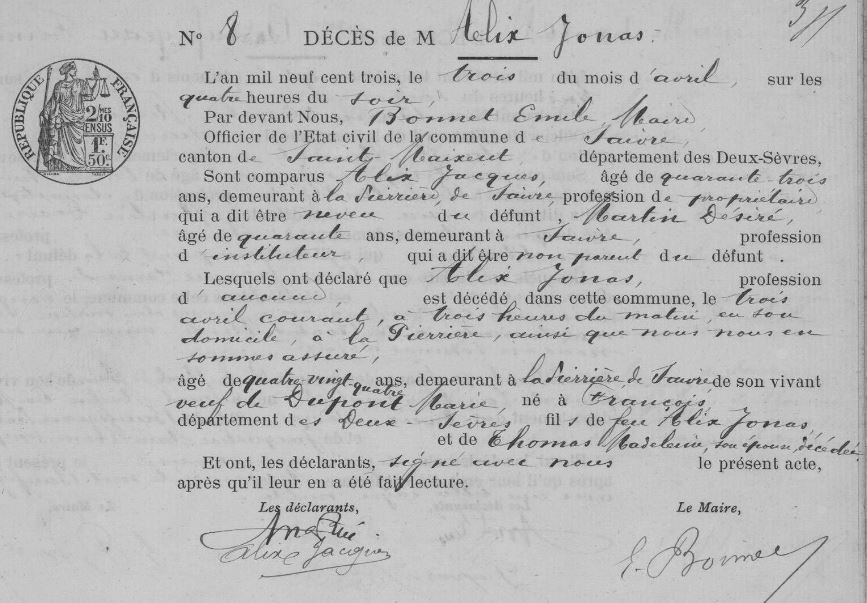 N° 8 DÉCÈS de M Alix Jonas.
RÉPUBLIQUE FRANÇAISE
2/10
EN SUS
1F.
50c
L'an mil neuf cent trois, le trois du mois d'avril, sur les
quatre heures du soir,
Par devant Nous, Bonnet Emile Maire,
Officier de l'Etat civil de la commune de Saivre,
canton de Saint-Maixent département des Deux-Sèvres,
Sont comparus Alix Jacques, âgé de quarante-trois
ans, demeurant à la Pierrière, de Saivre, profession de propriétaire
qui a dit être neveu du défunt, Martin Désiré,
âgé de quarante ans, demeurant à Saivre, profession
d'instituteur, qui a dit être non parent du défunt.
Lesquels ont déclaré que Alix Jonas, profession
d aucune est décédé dans cette commune, le trois
avril courant, à trois heures du matin, en son
domicile, à la Pierrière, ainsi que nous nous en
sommes assuré,
âgé de quatre-vingt-quatre ans, demeurant à la Pierrière, de Saivre de son vivant
veuf de Dupont Marie, né à François,
département des Deux-Sèvres fils de feu Alix Jonas,
et de Thomas Madeleine, son épouse, décédée
Et ont, les déclarants, signé avec nous le présent acte,
après qu'il leur en a été fait lecture.
Les déclarants, Le Maire,
Alix Jacques E. Bonnet